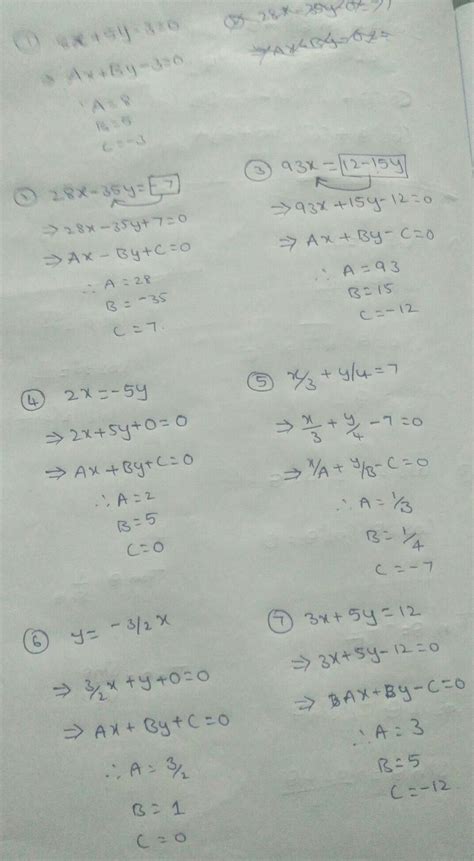 ① 8x+5y-3=0
⇒ Ax+By-3=0
∴ A=8
B=5
C=-3
② 28x-35y=-7
⇒ 28x-35y+7=0
⇒ Ax-By+C=0
∴ A=28
B=-35
C=7
③ 93x=12-15y
⇒ 93x+15y-12=0
⇒ Ax+By-C=0
∴ A=93
B=15
C=-12
④ 2x=-5y
⇒ 2x+5y+0=0
⇒ Ax+By+C=0
∴ A=2
B=5
C=0
⑤ x/3+y/4=7
⇒ x/3+y/4-7=0
⇒ x/A+y/B-C=0
∴ A=1/3
B=1/4
C=-7
⑥ y=-3/2x
⇒ 3/2x+y+0=0
⇒ Ax+By+C=0
∴ A=3/2
B=1
C=0
⑦ 3x+5y=12
⇒ 3x+5y-12=0
⇒ Ax+By-C=0
∴ A=3
B=5
C=-12